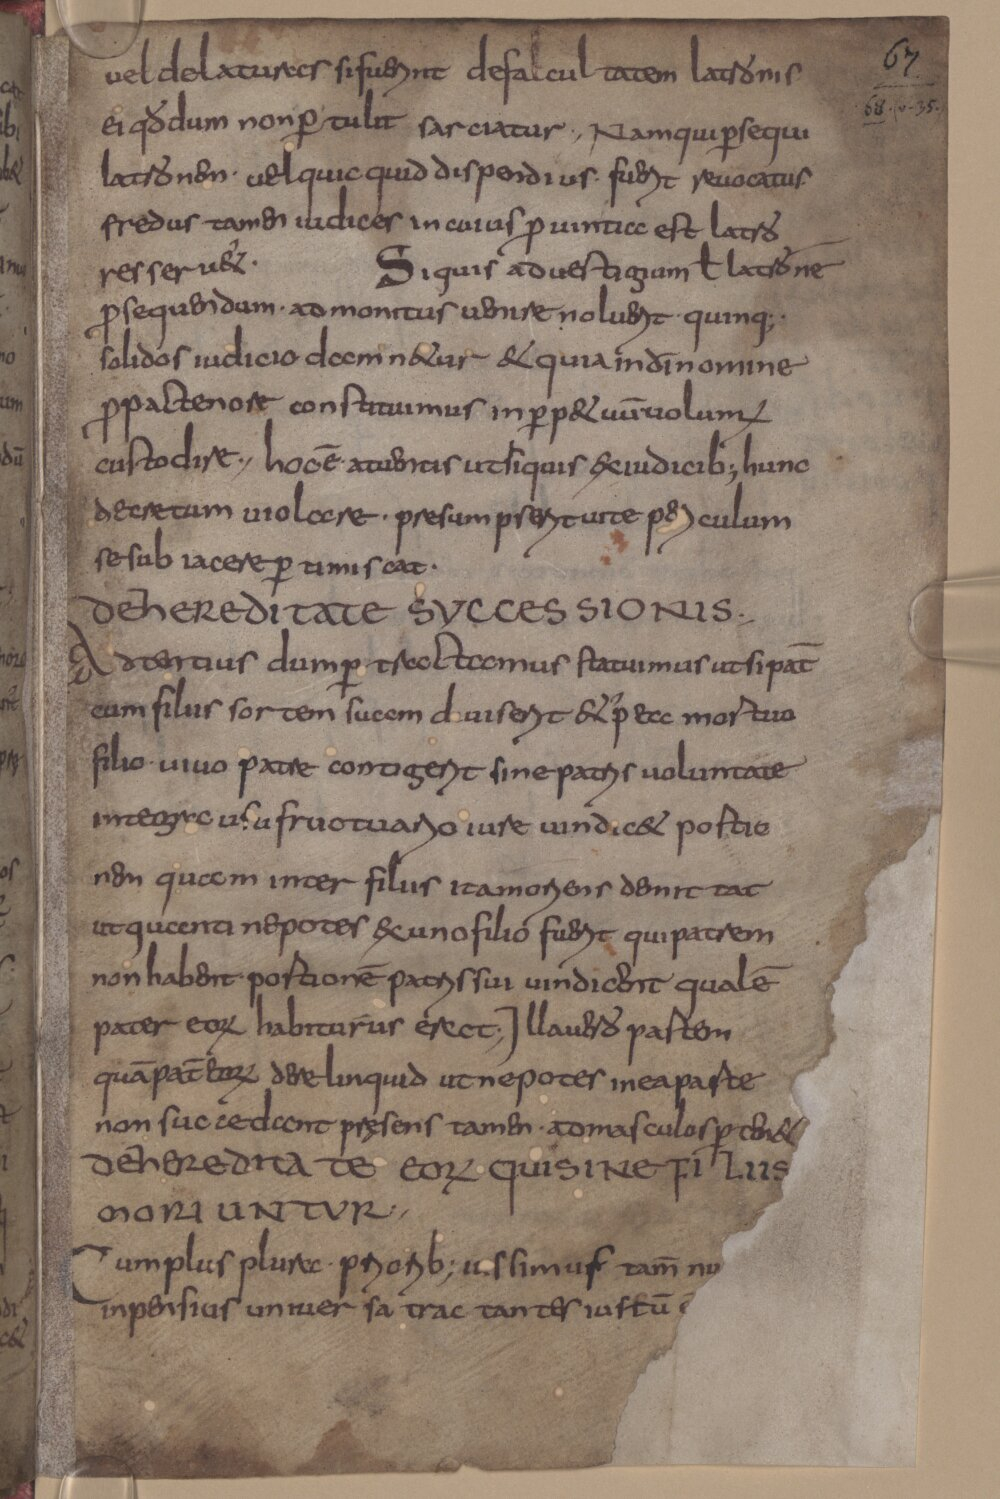 67
68. v. 35.
uel delaturas si fuerint defalcultatem latronis
ei qđ dum non ꝑtulit sarciatur., Nam qui ꝑsequi
latronem. uel quic quid dispendius. fuerit reuocatus
fredus tamen iudices in cuius ꝓuintia est latro
resseruet. Si quis ad uestigium ł latronē
ꝑsequendum. admonitus uenire noluerit. quinq;.
solidos iudicio damnetur & quia in dī nomine
ꝓ pactenore constituimus in ꝑp&uūuolum
custodire., hoc ē. aturntis ut si quis ex iudicib; hunc
decretum uiolare. presumpserit uite periculum
se sub iacere ꝑtimiscat.
DE HEREDITATE SVCCESSIONIS.
Ad tertius dum ꝑtractamus statuimus ut si pat̄
cum filius sortem suam diuiserit & p̄ea mortuo
filio. uiuo patre contigerit sine patris voluntate
integra usufructuario iure uindic& portio
nen quam inter filius ita moriens demittat
ut quanti nepotes ex uno filio fuerit qui patrem
non habent. portionē patris sui uindicent qualē
pater eoꝝ habiturus erat., Illa uero partem
quā pat̄ eoꝝ derelinquid ut nepotes in ea parte
non succedant presens tamen. ad masculos ꝑten&
DE HEREDITATE EOꝝ QUI SINE FILIIS
MORIUNTVR.,
Cum plus plura. priorib; iussimus tam̄ nu
inpensius uniuersa tractantes iustū